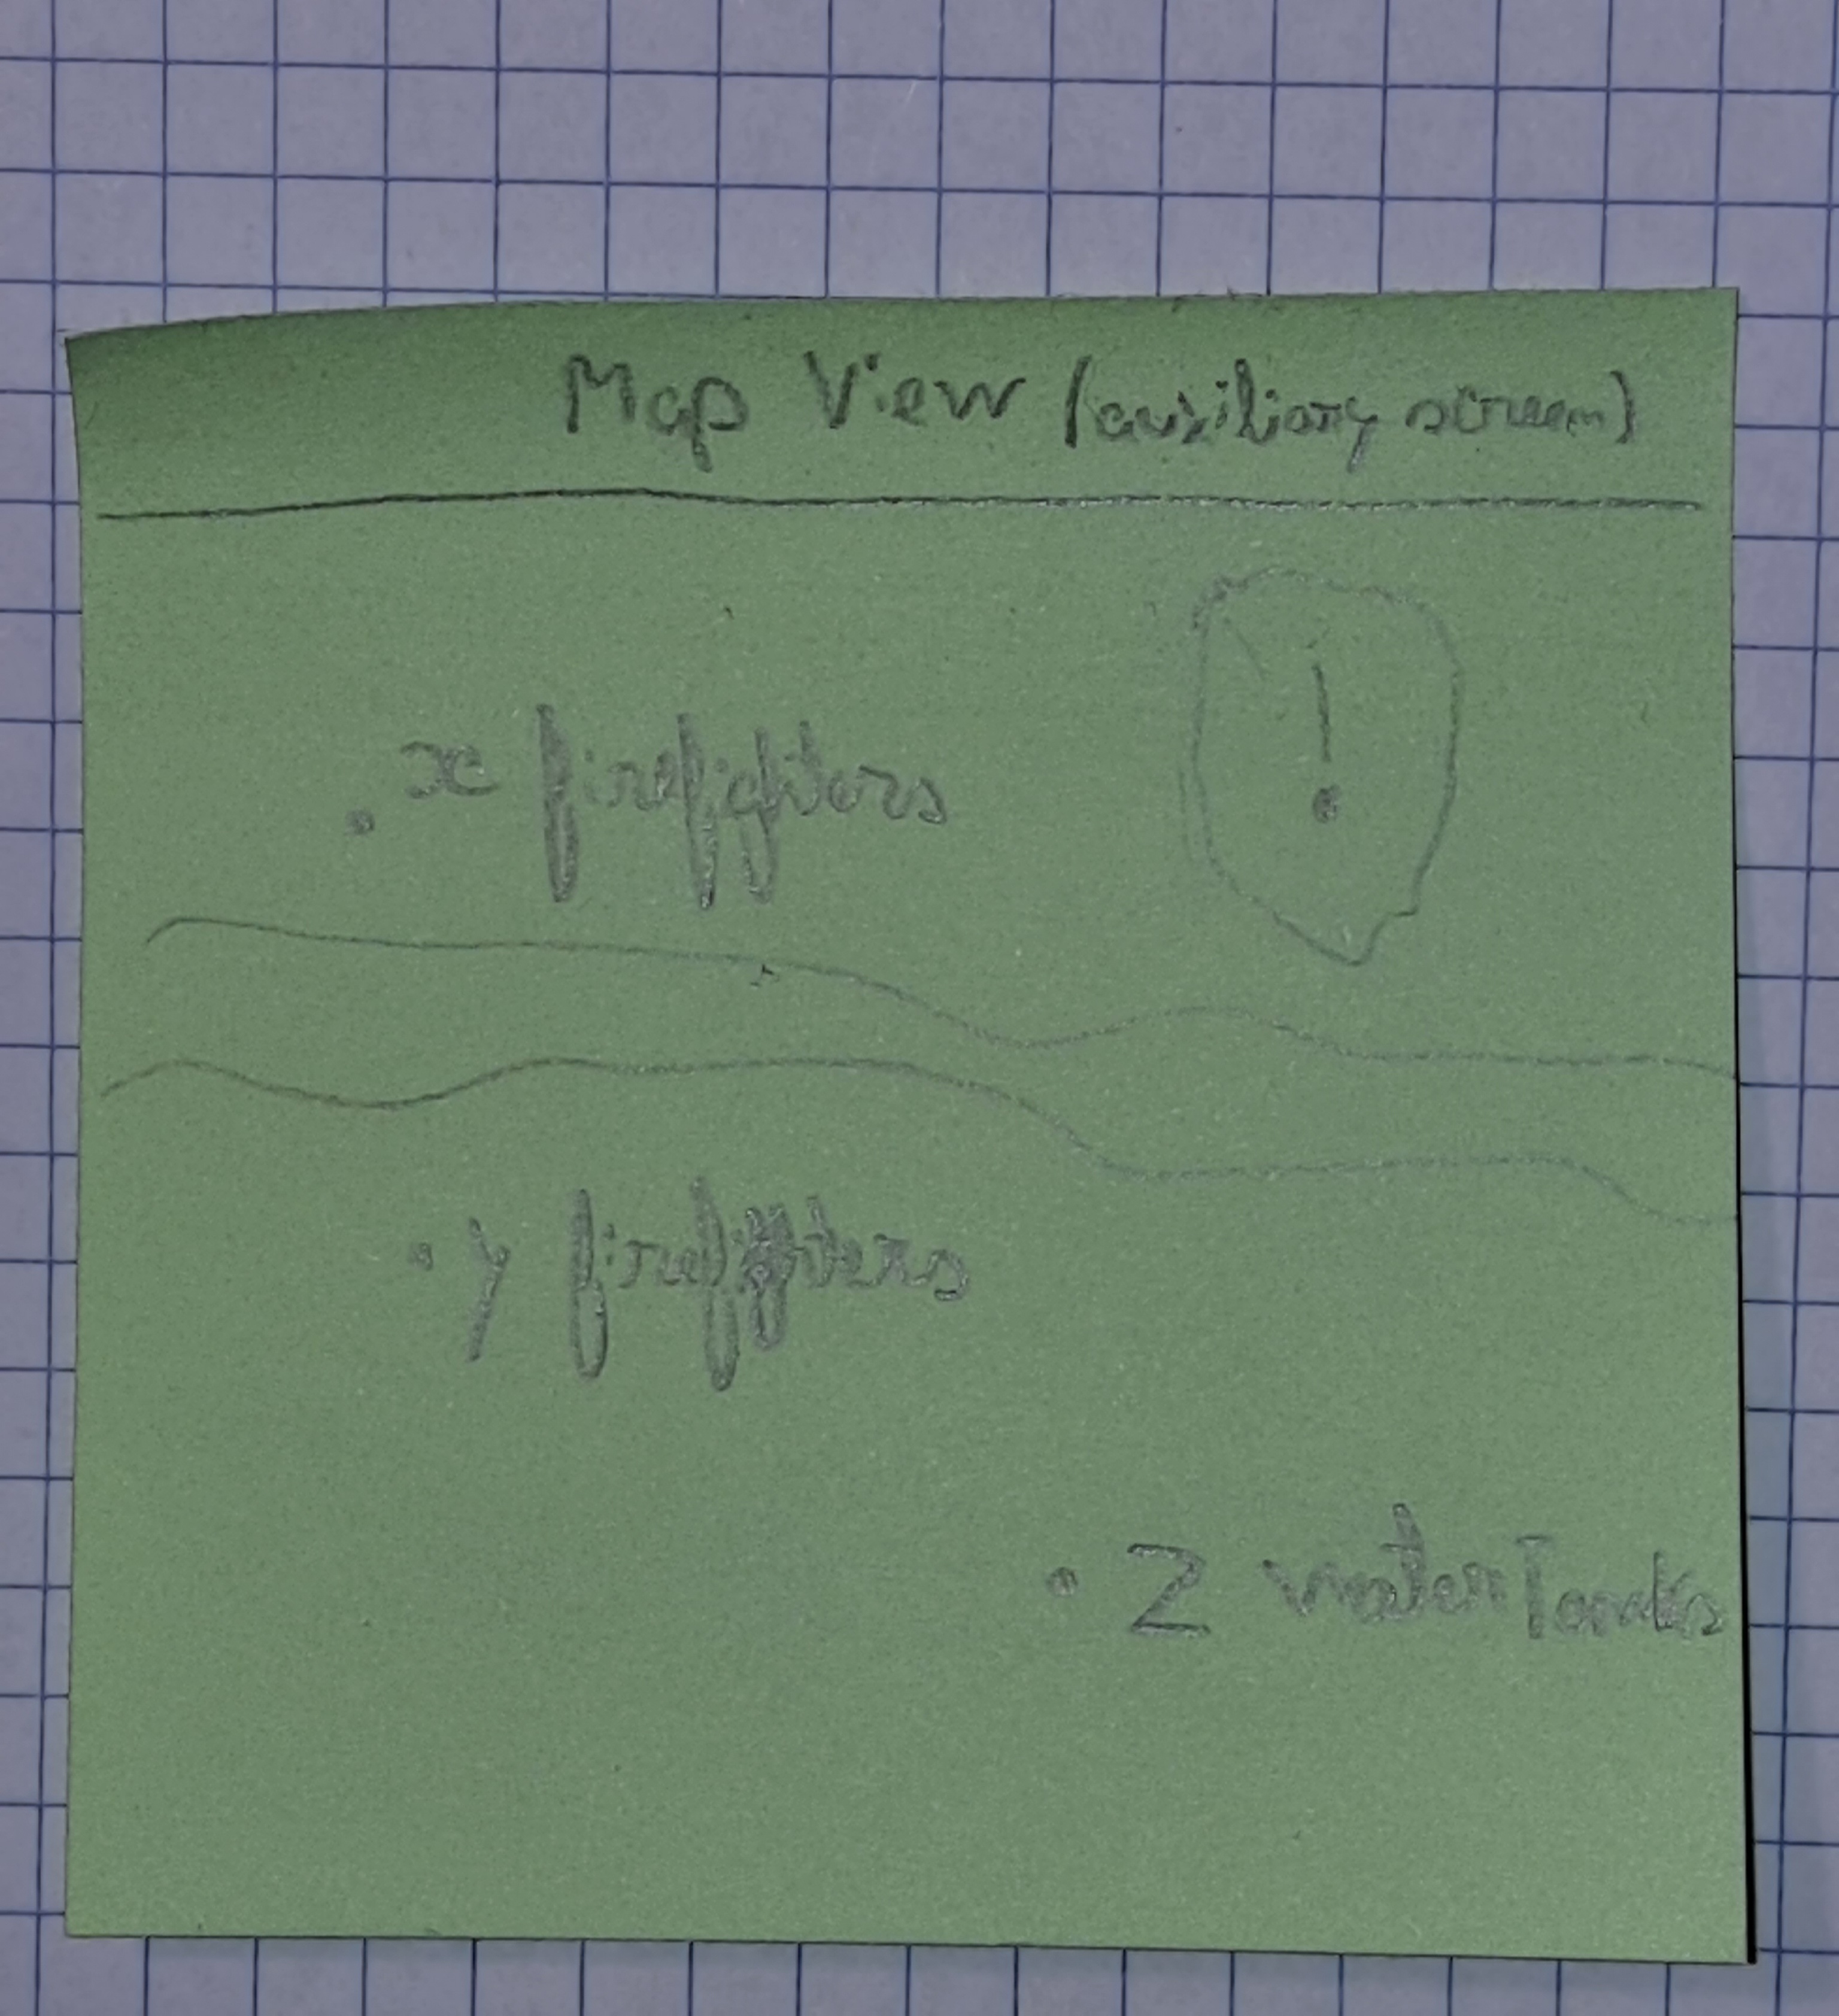 Map View (auxiliary screen)
. x firefighters
!
. y firefighters
. Z waterTanks